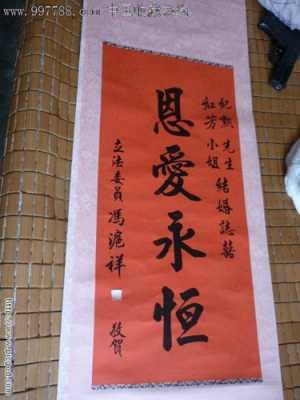 www.997788.com 中国收藏热线
紀勲先生
紅芳小姐
結婚誌囍
恩愛永恒
立法委員馮滬祥
敬賀